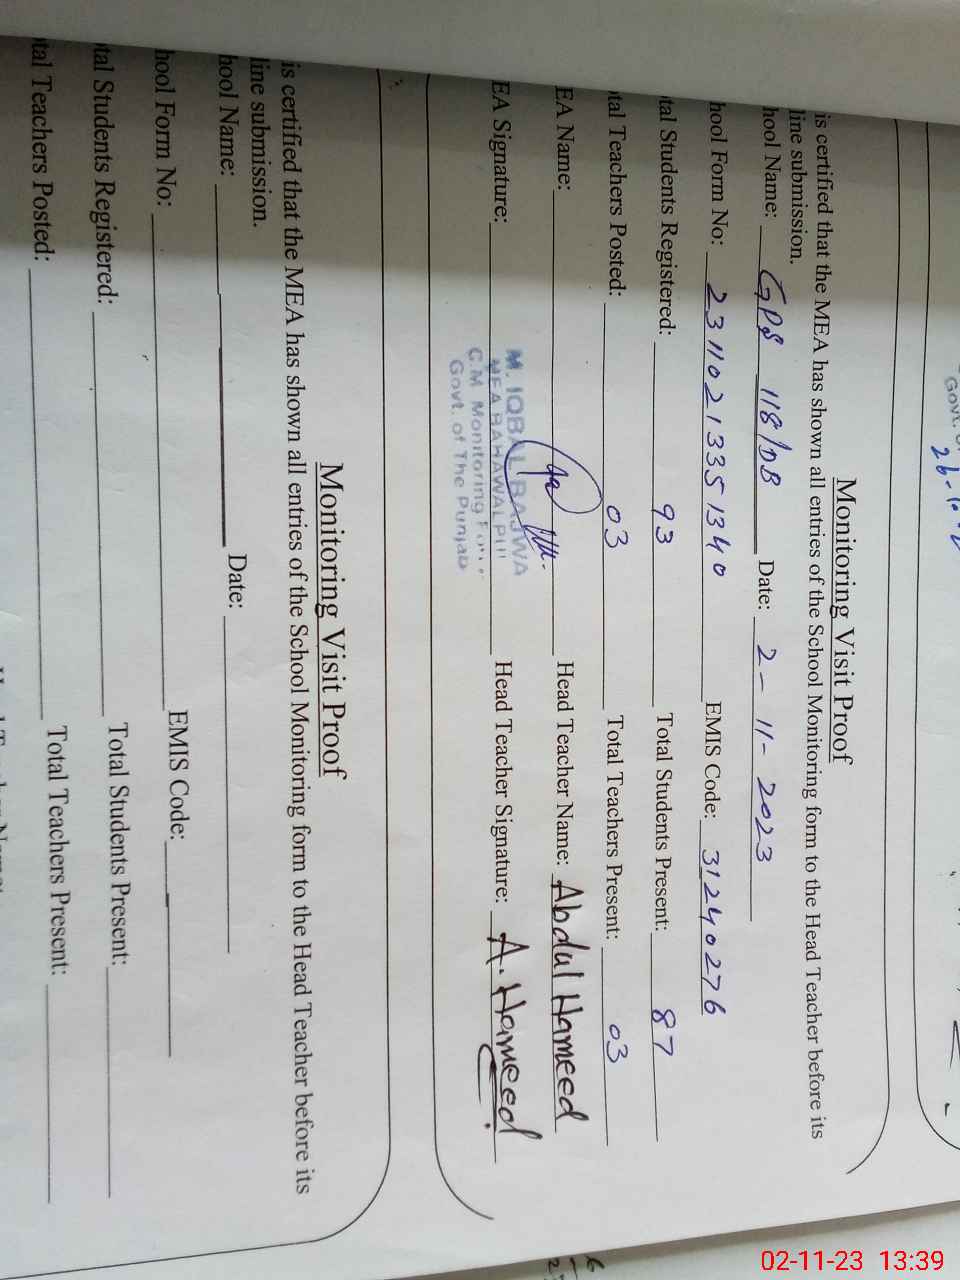 Govt.
Monitoring Visit Proof
is certified that the MEA has shown all entries of the School Monitoring form to the Head Teacher before its
line submission.
hool Name: GPS 118/DB Date: 2-11-2023
hool Form No: 2311021335 1340 EMIS Code: 31240276
tal Students Registered: 93 Total Students Present: 87
tal Teachers Posted: 03 Total Teachers Present: 03
EA Name: Head Teacher Name: Abdul Hameed
EA Signature: Head Teacher Signature: A. Hameed
M. IQBAL BAJWA
MEA BAHAWALPUR
C.M Monitoring Force
Govt. of The Punjab
Monitoring Visit Proof
is certified that the MEA has shown all entries of the School Monitoring form to the Head Teacher before its
line submission.
hool Name: Date:
hool Form No: EMIS Code:
tal Students Registered: Total Students Present:
tal Teachers Posted: Total Teachers Present:
02-11-23 13:39